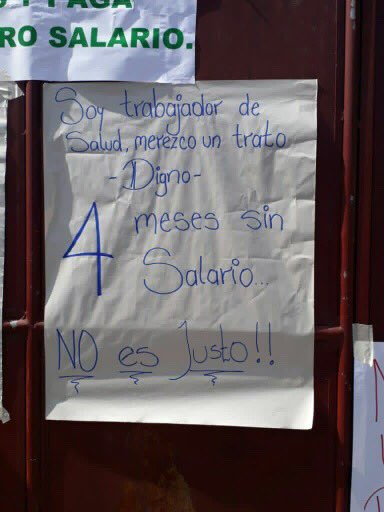 PAGA
RO SALARIO.
Soy trabajador de
Salud, merezco un trato
-Digno-
4 meses sin
Salario...
NO es Justo!!